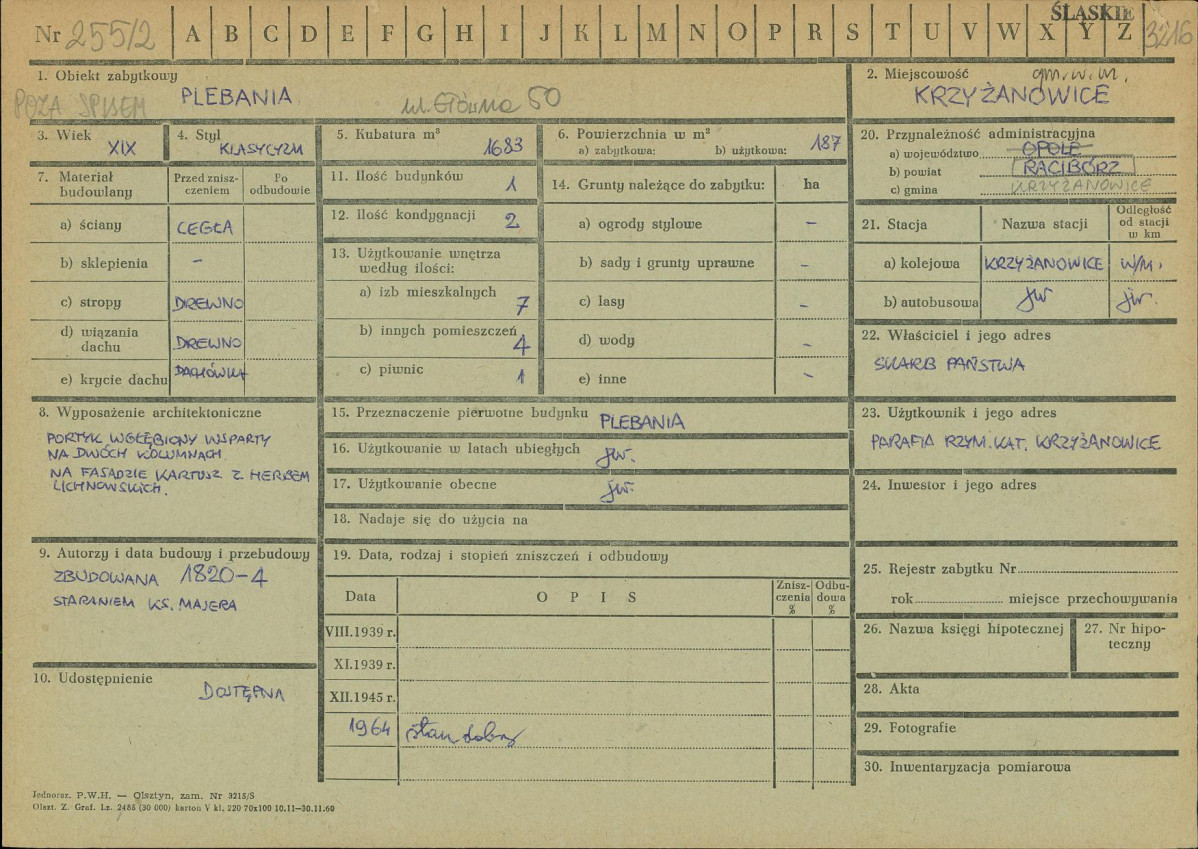 ŚLĄSKIE
Nr 255/2 A B C D E F G H I J K L M N O P R S T U V W X Y Z 3216
1. Obiekt zabytkowy
POZA SPISEM PLEBANIA ul. Główna 50
2. Miejscowość gm. w. m.
KRZYŻANOWICE
3. Wiek XIX
4. Styl KLASYCYZM
5. Kubatura m³ 1683
6. Powierzchnia w m²
a) zabytkowa: b) użytkowa: 187
7. Materiał budowlany
Przed znisz-
czeniem
Po
odbudowie
a) ściany CEGŁA
b) sklepienia –
c) stropy DREWNO
d) wiązania
dachu DREWNO
e) krycie dachu DACHÓWKA
8. Wyposażenie architektoniczne
PORTYK WGŁĘBIONY WSPARTY
NA DWÓCH KOLUMNACH.
NA FASADZIE KARTUSZ Z HERBEM
LICHNOWSKICH.
9. Autorzy i data budowy i przebudowy
ZBUDOWANA 1820-4
STARANIEM KS. MAJERA
10. Udostępnienie
DOSTĘPNA
11. Ilość budynków 1
12. Ilość kondygnacji 2
13. Użytkowanie wnętrza
według ilości:
a) izb mieszkalnych 7
b) innych pomieszczeń 4
c) piwnic 1
14. Grunty należące do zabytku: ha
a) ogrody stylowe –
b) sady i grunty uprawne –
c) lasy –
d) wody –
e) inne –
15. Przeznaczenie pierwotne budynku PLEBANIA
16. Użytkowanie w latach ubiegłych jw.
17. Użytkowanie obecne jw.
18. Nadaje się do użycia na
19. Data, rodzaj i stopień zniszczeń i odbudowy
Data
O P I S
Znisz-
czenia
%
Odbu-
dowa
%
VIII.1939 r.
XI.1939 r.
XII.1945 r.
1964 stan dobry
20. Przynależność administracyjna
a) województwo OPOLE
b) powiat RACIBÓRZ
c) gmina KRZYŻANOWICE
21. Stacja
Nazwa stacji
Odległość
od stacji
w km
a) kolejowa KRZYŻANOWICE w/M.
b) autobusowa jw jw.
22. Właściciel i jego adres
SKARB PAŃSTWA
23. Użytkownik i jego adres
PARAFIA RZYM. KAT. KRZYŻANOWICE
24. Inwestor i jego adres
25. Rejestr zabytku Nr
rok miejsce przechowywania
26. Nazwa księgi hipotecznej
27. Nr hipo-
teczny
28. Akta
29. Fotografie
30. Inwentaryzacja pomiarowa
Jednoraz. P.W.H. — Olsztyn, zam. Nr 3215/S
Olszt. Z. Graf. Lz. 2485 (30 000) karton V kl. 220 70x100 10.11—30.11.60